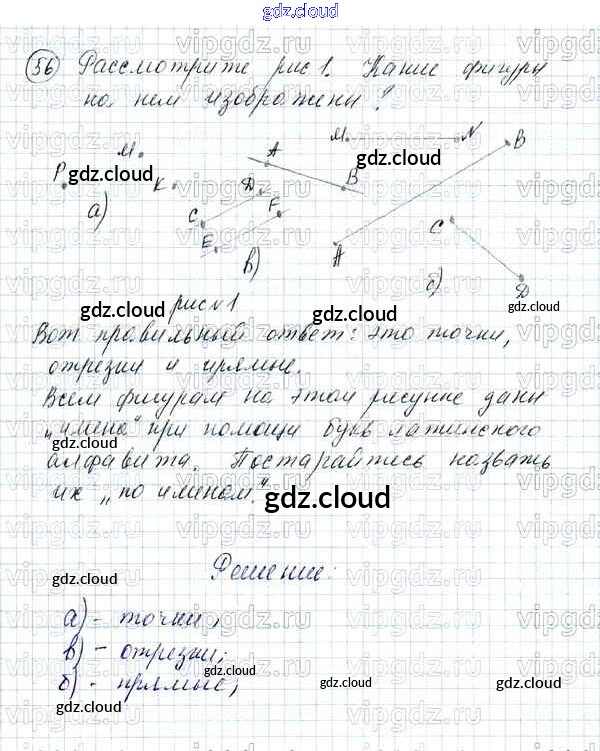 gdz.cloud
gdz.cloud
56 Рассмотрите рис 1. Какие фигуры
на нем изображены?
M N
A B
M
P K
gdz.cloud
gdz.cloud
D B
C F C
E A
а) в) б) D
gdz.cloud рис №1 gdz.cloud
Вот правильный ответ: это точки,
отрезки и прямые.
Всем фигурам на этом рисунке даны
"имена" при помощи букв латинского
gdz.cloud
алфавита. Постарайтесь назвать
их "по именам".
gdz.cloud
Решение:
gdz.cloud gdz.cloud
а) - точки,
в) - отрезки;
gdz.cloud
б) - прямые,
gdz.cloud gdz.cloud
gdz.cloud
vipgdz.ru